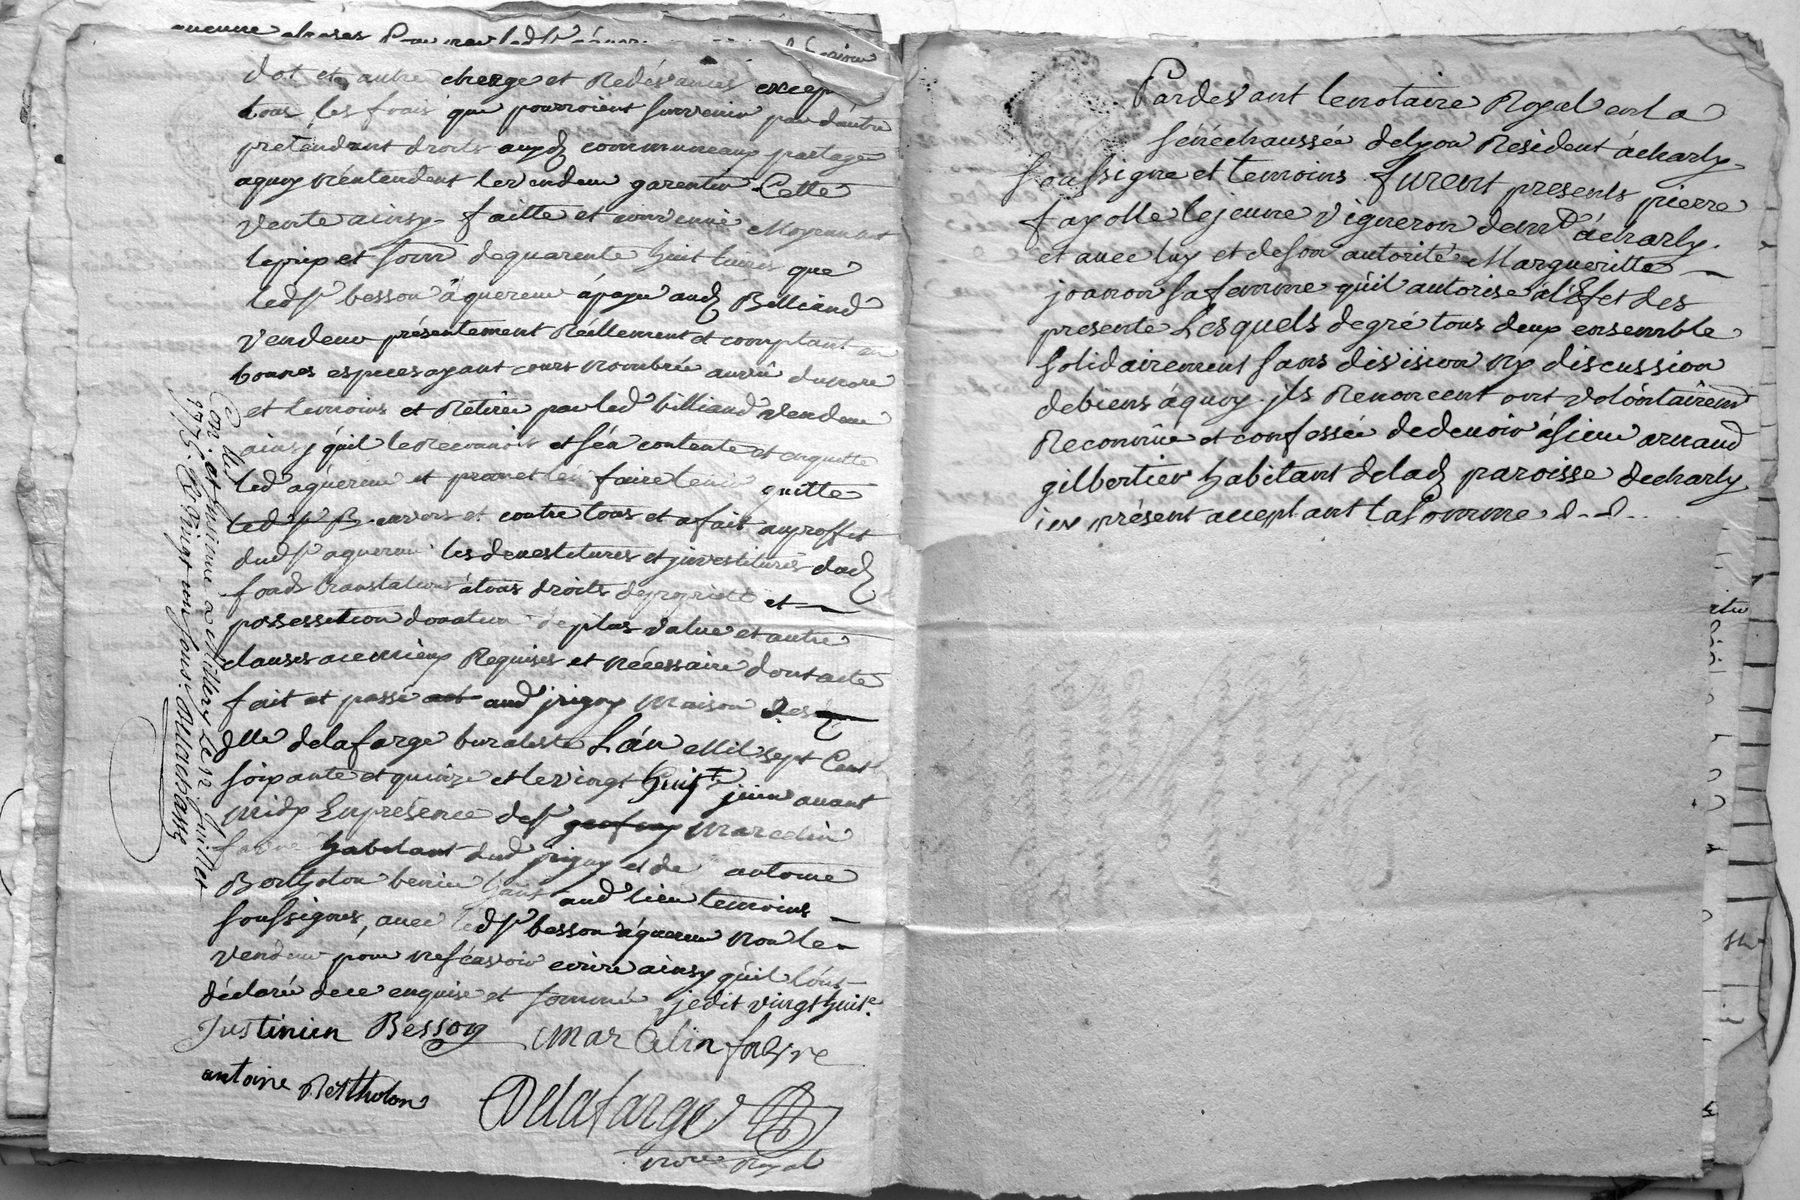 aucune choses
dot et autre cherge et Redévances excep
tous les frais que pourroient survenir par d'autre
prétendant droits auxd communeaux partage
aquoy n'entendent le vendeur garentir Cette
Vente ainsy faitte et convenüe Moyennant
le prix et somme de quarente huit livres que
led sr besson âquereur à payé aud Billiand
Vendeur présentement Réellement et comptant en
bonnes especes ayant cours nombrée au vû du notre
et temoins et Retirée par led billiand vendeur
ainsy qu'il le Reconnoit et s'en contente et enquitte
led aquereur et promet l'en faire tenir quitte
led sr B. envers et contre tous et a fait au proffit
dud sr aquereur les devestitures et investitures dud
fonds translations à tous droits de propriett et
possession donation de plus value et autre
clauses a ce mieux Requises et nécessaire dont acte
fait et passé aud jrigny Maison des
dlle delafarge buraliste L'an Mil sept Cent
soixante et quinze et le vingt huitt juin avant
midy En présence de sr Marcelin
fabre habitant dud jrigny et de antoine
Bertholon aud lieu temoins
soussignés, avec led sr besson âquereur non le
vendeur pour ne sçavoir ecrire ainsy qu'il l'a
déclaré de ce enquise et sommé jedit vingt huit.
Justinien Besson Marcelin fabre
antoine Bertholon
Delafarge
Notre Royal
Con. et Insinué a Millery Le 12 Juillet
1775. R vingt un sous.
Pardevant le notaire Royal en la
sénéchaussée de lyon Résident à charly
soussigné et temoins furent presents pierre
fayolle le jeune vigneron demt à charly.
et avec luy et de son autorité Margueritte
joanon sa femme qu'il autorise à l'éfet des
presente Lesquels de gré tous deux ensemble
solidairement sans division ny discussion
de biens à quoy ils Renoncent ont volontairemt
Reconnüe et confessée de devoir à sieur arnaud
gilbertier habitant de lad paroisse de charly
icy présent acceptant la somme d